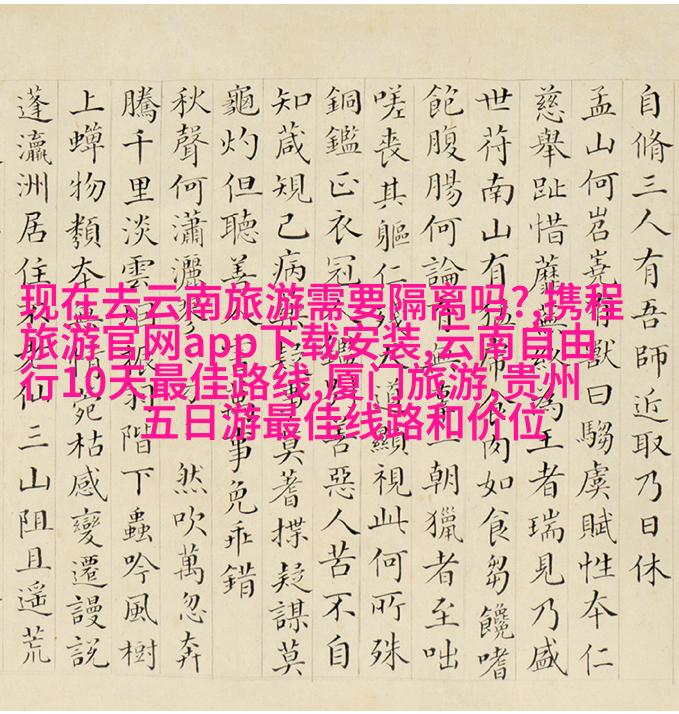 自脩三人有吾師近取乃日休
孟山何岧嶤有獸曰騶虞賦性本仁
慈舉趾惜蘼蕪為王者瑞見乃盛
世苻南山有食肉如食芻饞嗜
飽腹腸何論一朝獵者至咄
嗟喪其軀仁道顯視此何所殊
銅鑑正衣冠善惡人苦不自
知葴規己病莫蓍揲疑謀莫
龜灼但聽善事免乖錯
秋聲何瀟灑然吹萬忽奔
騰千里淡雲階下蟲吟風樹
上蟬物類本情菀枯感變遷謾説
蓬瀛洲居住仙三山阻且遙荒
现在去云南旅游需要隔离吗?,携程
旅游官网app下载安装,云南自由
行10天最佳路线,厦门旅游,贵州
五日游最佳线路和价位